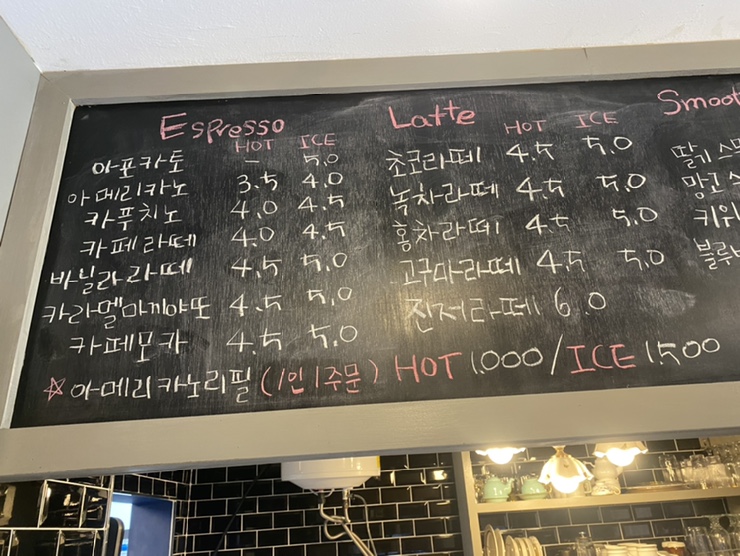 Espresso
HOT ICE
아포카토 - 5.0
아메리카노 3.5 4.0
카푸치노 4.0 4.5
카페라떼 4.0 4.5
바닐라라떼 4.5 5.0
카라멜마끼야또 4.5 5.0
카페모카 4.5 5.0
Latte
HOT ICE
초코라떼 4.5 5.0
녹차라떼 4.5 5.0
홍차라떼 4.5 5.0
고구마라떼 4.5 5.0
진저라떼 6.0
Smoot
딸기스무
망고스
키위
블루베
☆아메리카노리필 (1인1주문) HOT 1.000/ICE 1.500